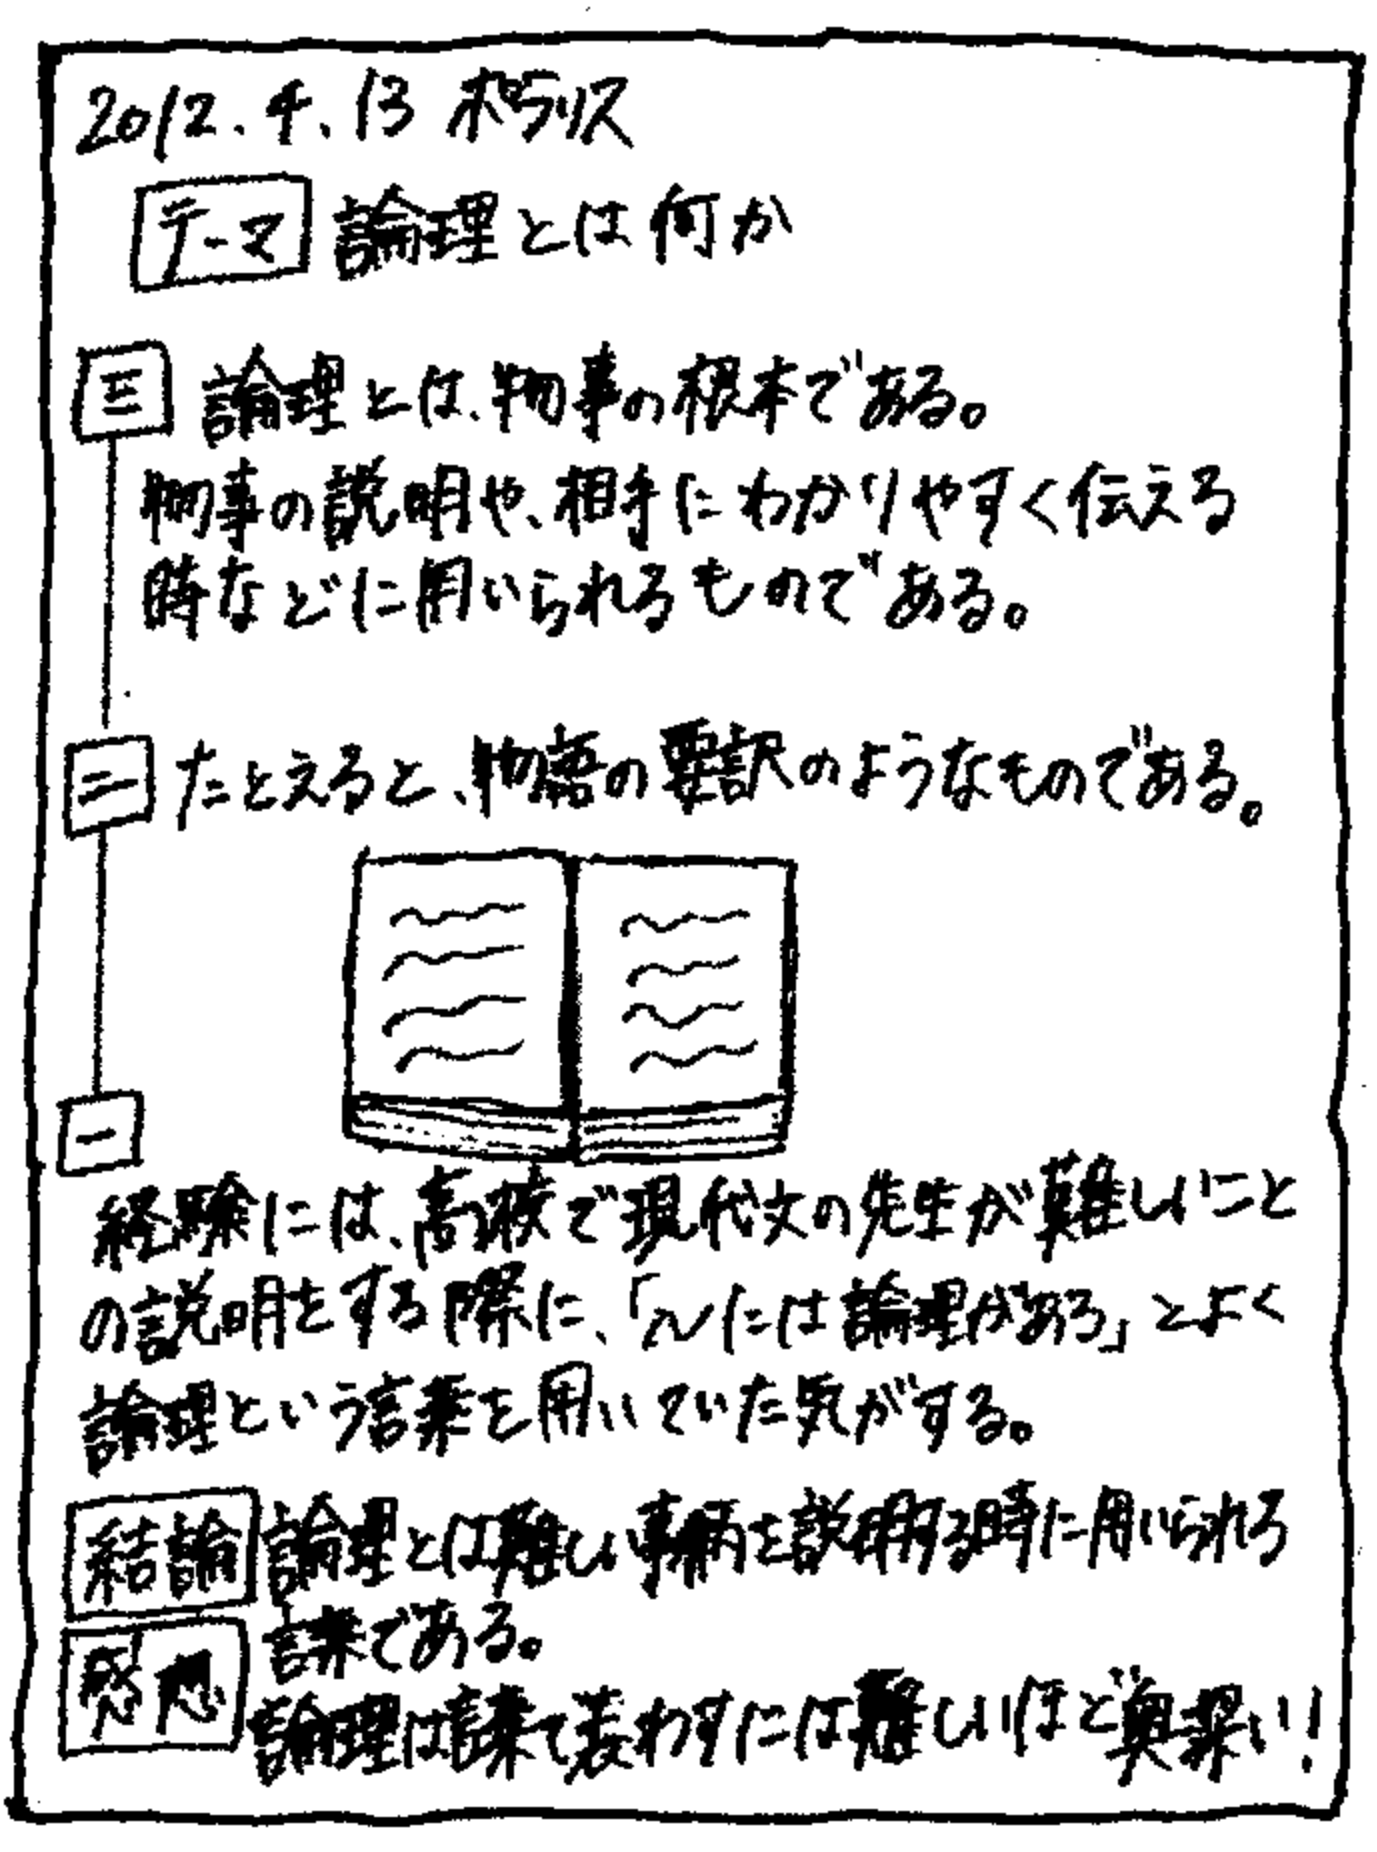 2012.4.13 ポラリス
テーマ 論理とは何か
三 論理とは、物事の根本である。
物事の説明や、相手にわかりやすく伝える
時などに用いられるものである。
二 たとえると、物語の要訳のようなものである。
一
経験には、高校で現代文の先生が難しいこと
の説明をする際に、「〜には論理がある」とよく
論理という言葉を用いていた気がする。
結論 論理とは難しい事柄を説明する時に用いられる
言葉である。
感想 論理は言葉で表わすには難しいほど奥深い!